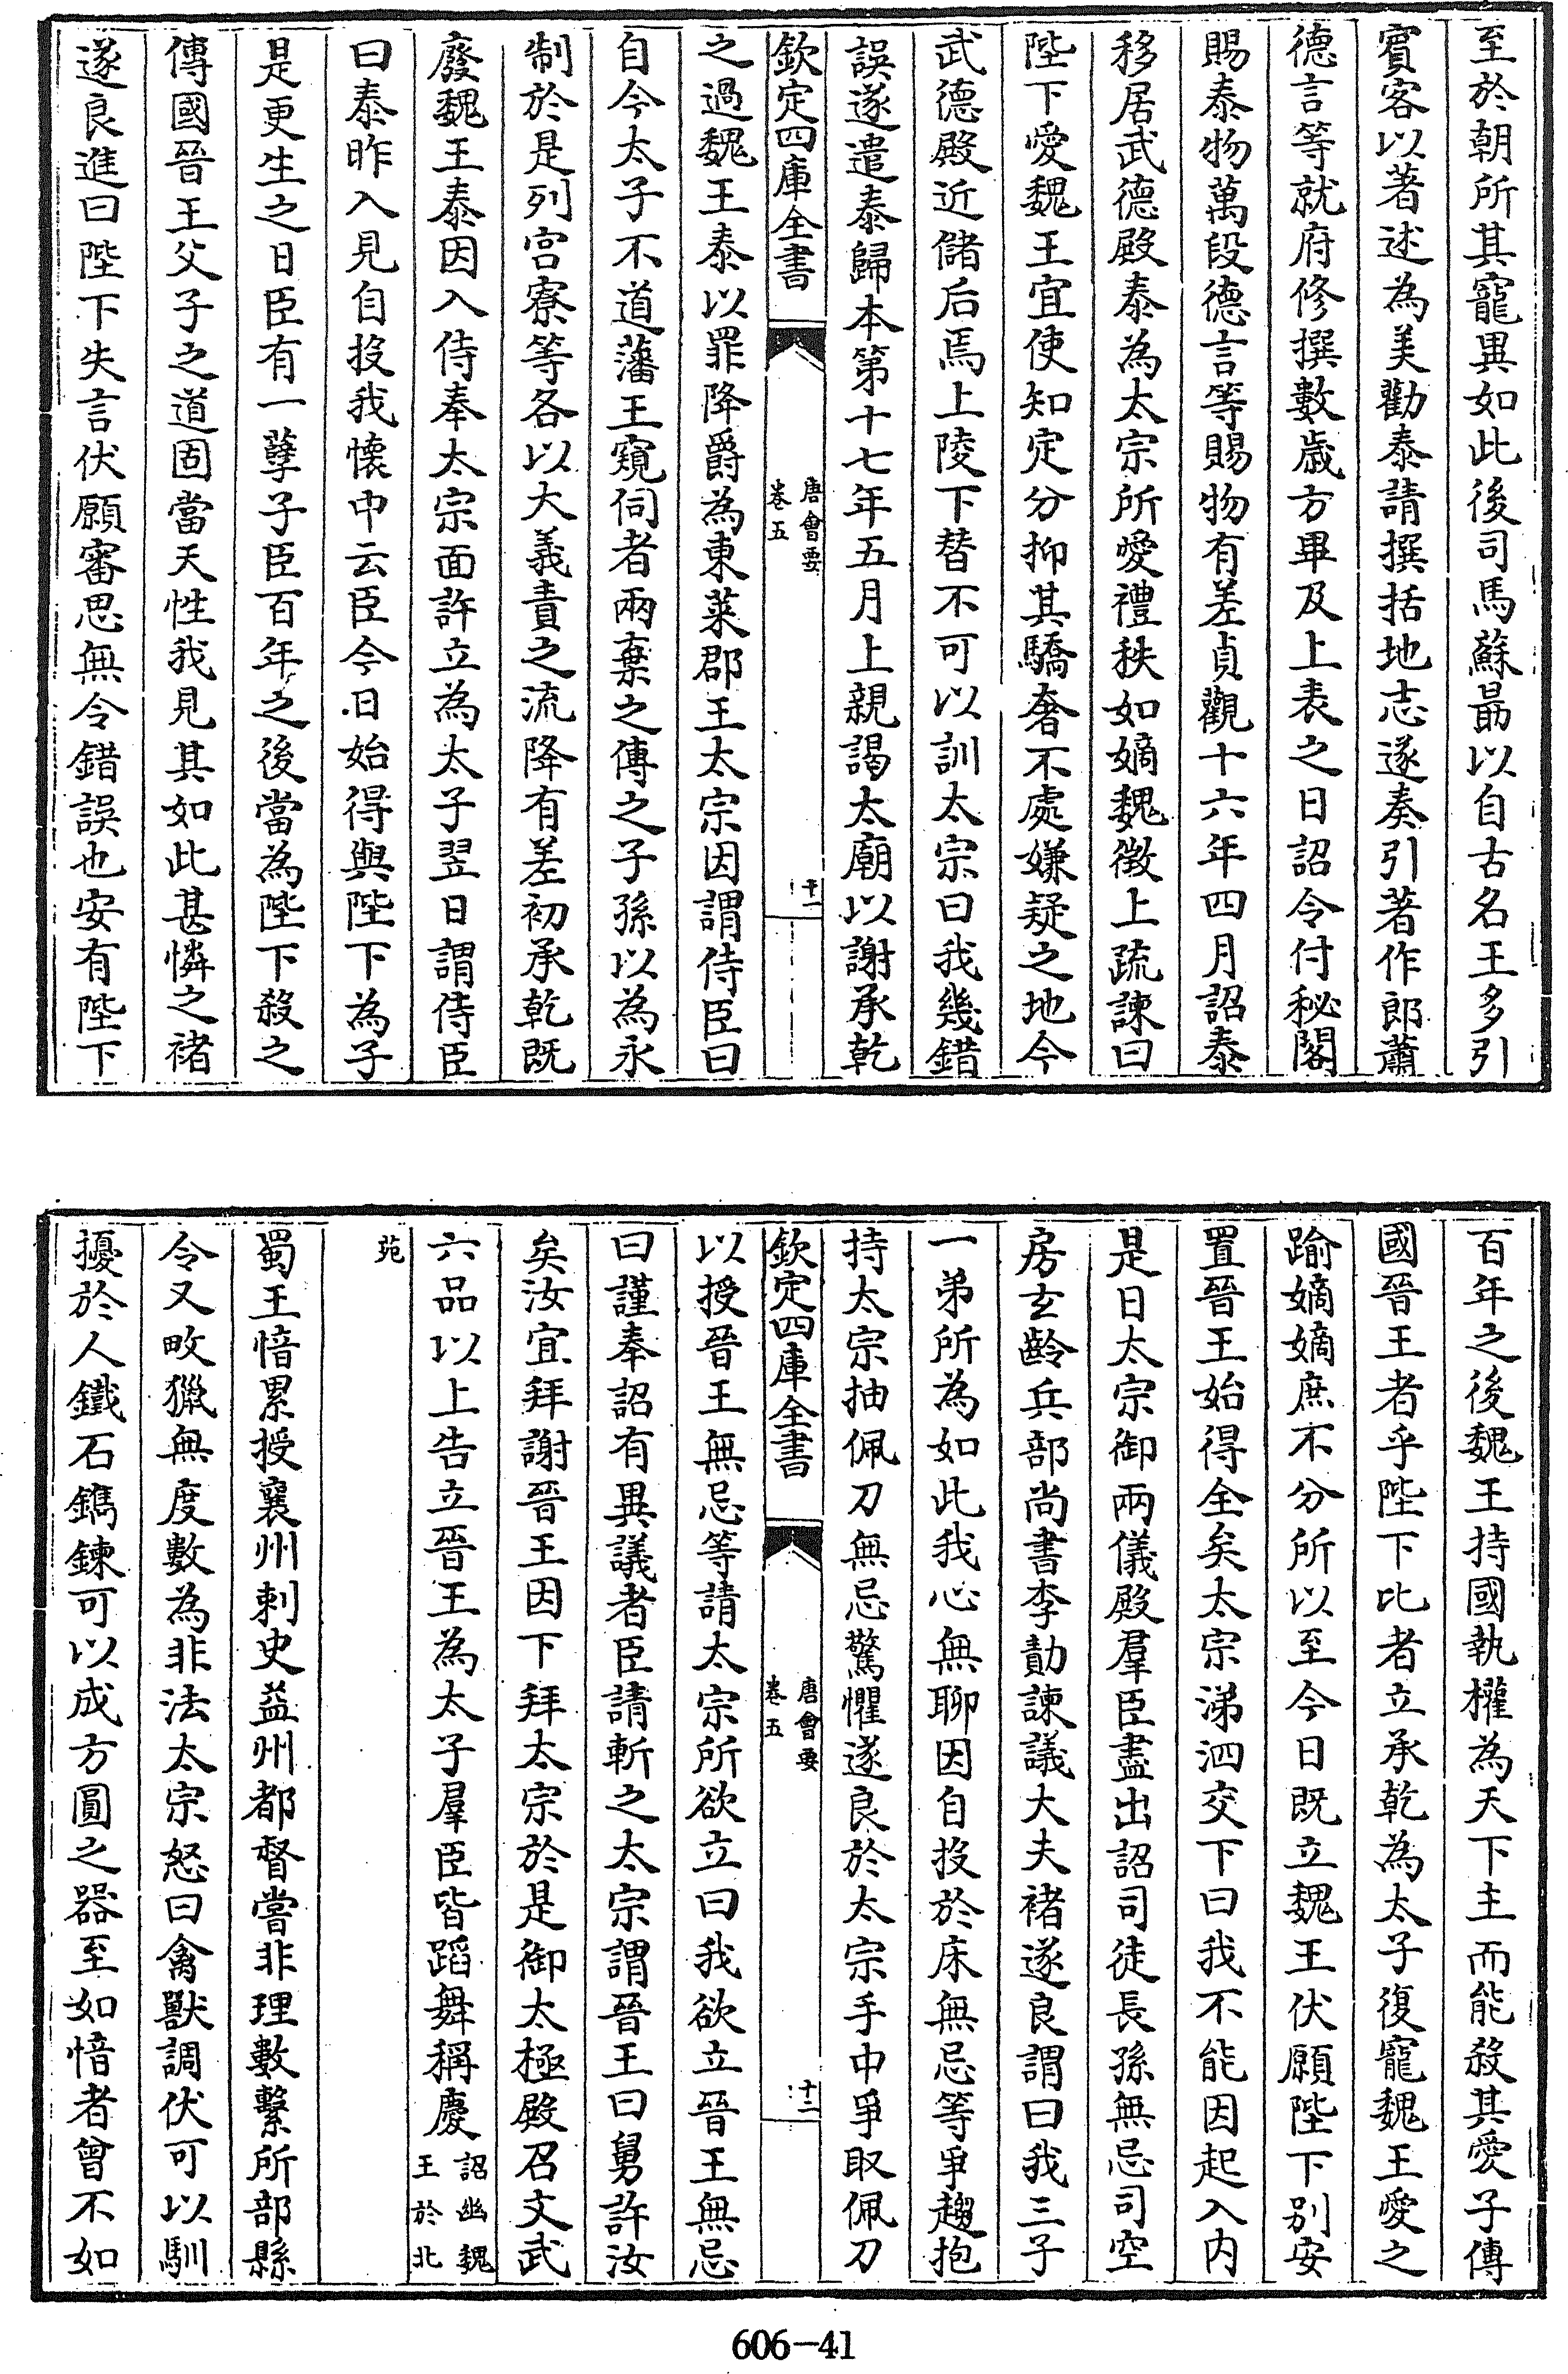 至於朝所其寵異如此後司馬蘇勗以自古名王多引
賓客以著述為美勸泰請撰括地志遂奏引著作郎蕭
德言等就府修撰數歲方畢及上表之日詔令付秘閣
賜泰物萬段德言等賜物有差貞觀十六年四月詔泰
移居武德殿泰為太宗所愛禮秩如嫡魏徵上疏諫曰
陛下愛魏王宜使知定分抑其驕奢不處嫌疑之地今
武德殿近儲后焉上陵下替不可以訓太宗曰我幾錯
誤遂遣泰歸本第十七年五月上親謁太廟以謝承乾
欽定四庫全書
唐會要
卷五
十一
之過魏王泰以罪降爵為東萊郡王太宗因謂侍臣曰
自今太子不道藩王窺伺者兩棄之傳之子孫以為永
制於是列宮寮等各以大義責之流降有差初承乾既
廢魏王泰因入侍奉太宗面許立為太子翌日謂侍臣
曰泰昨入見自投我懷中云臣今日始得與陛下為子
是更生之日臣有一孽子臣百年之後當為陛下殺之
傳國晉王父子之道固當天性我見其如此甚憐之褚
遂良進曰陛下失言伏願審思無令錯誤也安有陛下
百年之後魏王持國執權為天下主而能殺其愛子傳
國晉王者乎陛下比者立承乾為太子復寵魏王愛之
踰嫡嫡庶不分所以至今日既立魏王伏願陛下別安
置晉王始得全矣太宗涕泗交下曰我不能因起入內
是日太宗御兩儀殿羣臣盡出詔司徒長孫無忌司空
房玄齡兵部尚書李勣諫議大夫褚遂良謂曰我三子
一弟所為如此我心無聊因自投於床無忌等爭趨抱
持太宗抽佩刀無忌驚懼遂良於太宗手中爭取佩刀
欽定四庫全書
唐會要
卷五
十二
以授晉王無忌等請太宗所欲立曰我欲立晉王無忌
曰謹奉詔有異議者臣請斬之太宗謂晉王曰舅許汝
矣汝宜拜謝晉王因下拜太宗於是御太極殿召文武
六品以上告立晉王為太子羣臣皆蹈舞稱慶詔幽魏
王於北
苑
蜀王愔累授襄州刺史益州都督嘗非理數繫所部縣
令又畋獵無度數為非法太宗怒曰禽獸調伏可以馴
擾於人鐵石鐫鍊可以成方圓之器至如愔者曾不如
606-41